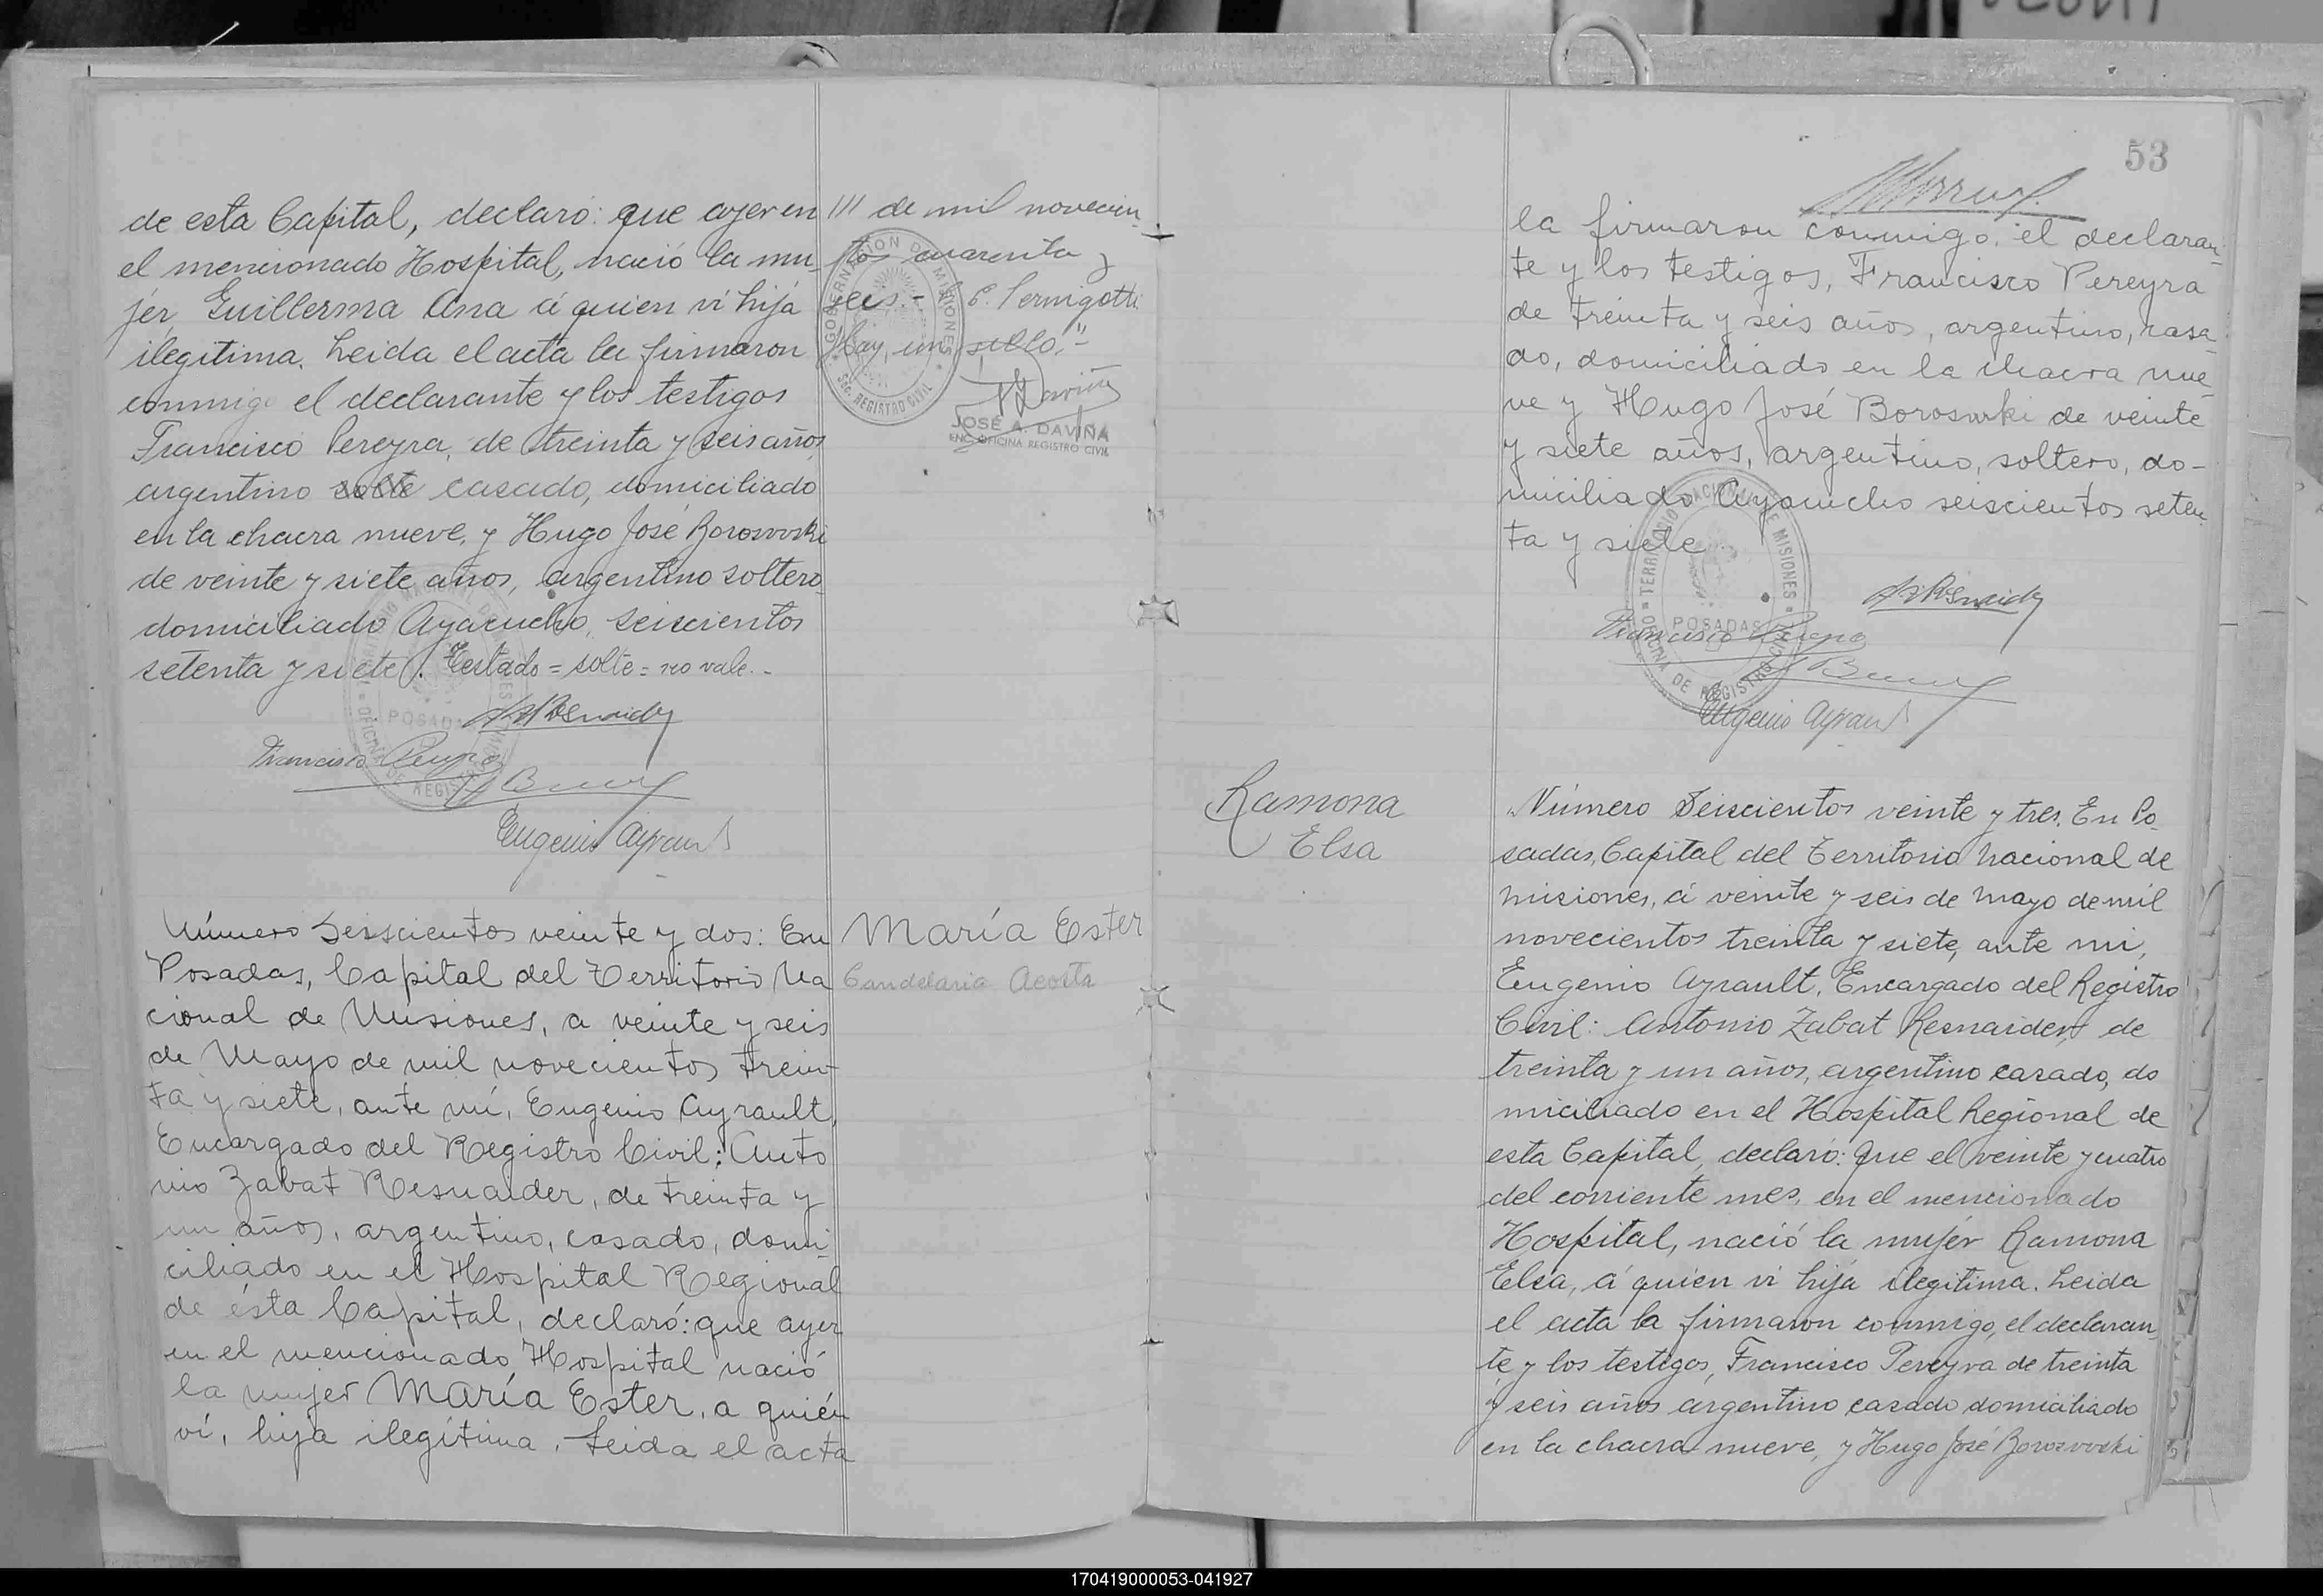 de esta Capital, declaró: que ayer en
el mencionado Hospital, nació la mu-
jer, Guillerma Ana á quien ví hija
ilegítima. Leida el acta la firmaron
conmigo el declarante y los testigos
Francisco Pereyra, de treinta y seis años,
argentino solte casado, domiciliado
en la chacra nueve, y Hugo José Borosovski
de veinte y siete años, argentino soltero
domiciliado Ayacucho, seiscientos
setenta y siete. Testado = solte = no vale.-
Francisco
Eugenio Ayrault
III de mil novecien-
tos cuarenta y
GOBERNACION DE MISIONES
SEC. REGISTRO CIVIL
Hay un sello."
JOSÉ A. DAVIÑA
ENC. OFICINA REGISTRO CIVIL
TERRITORIO NACIONAL DE MISIONES
POSADAS
OFICINA DE REGISTRO CIVIL
Número Seisscientos veinte y dos: En
Posadas, Capital del Territorio Na
cional de Misiones, a veinte y seis
de Mayo de mil novecientos trein-
ta y siete, ante mí, Eugenio Ayrault,
Encargado del Registro Civil: Anto
nio Zabat Resnaider, de treinta y
un años, argentino, casado, domi-
ciliado en el Hospital Regional
de ésta Capital, declaró: que ayer
en el mencionado Hospital nació
la mujer María Ester, a quién
ví, hija ilegítima. Leida el acta
María Ester
Candelaria Acosta
53
la firmaron conmigo, el declaran-
te y los testigos, Francisco Pereyra
de treinta y seis años, argentino, casa-
do, domiciliado en la chacra nue-
ve y Hugo José Borosvski de veinte
y siete años, argentino, soltero, do-
miciliado Ayacucho seiscientos seten
ta y siete.
TERRITORIO NACIONAL DE MISIONES
POSADAS
OFICINA DE REGISTRO CIVIL
Francisco
Eugenio Ayrault
Ramona
Elsa
Número Seiscientos veinte y tres. En Po-
sadas, Capital del Territorio Nacional de
Misiones, á veinte y seis de Mayo de mil
novecientos treinta y siete, ante mi,
Eugenio Ayrault, Encargado del Registro
Civil: Antonio Zabat Resnaider, de
treinta y un años, argentino casado, do
miciliado en el Hospital Regional de
esta Capital, declaró: Que el veinte y cuatro
del corriente mes, en el mencionado
Hospital, nació la mujer Ramona
Elsa, á quien ví hija ilegítima. Leida
el acta la firmaron conmigo, el declaran-
te y los testigos, Francisco Pereyra de treinta
y seis años argentino casado domiciliado
en la chacra nueve, y Hugo José Borosovski
170419000053-041927